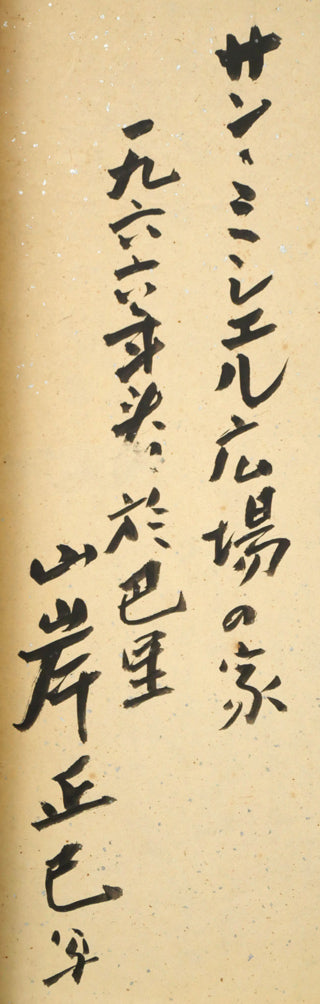 サン・ミシエル広場の家
一九六六年頭、於巴里
山岸丘巳